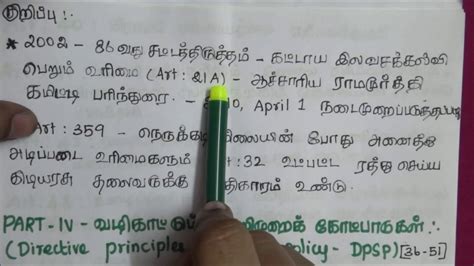 குறிப்பு :-
* 2002 - 86 வது சட்டத்திருத்தம் - கட்டாய இலவசக்கல்வி
பெறும் உரிமை (Art : 21A) - ஆச்சாரிய ராமமூர்த்தி
கமிட்டி பரிந்துரை. - 10, April 1 நடைமுறைப்படுத்தப்பட
Art : 359 - நெருக்கடி நிலையின் போது அனைத்து
அடிப்படை உரிமைகளும் : 32 உட்பட்ட ரத்து செய்ய
குடியரசு தலைவருக்கு அதிகாரம் உண்டு.
PART-IV - கோட்பாடுகள் :-
(Directive principles policy - DPSP) [36-51]